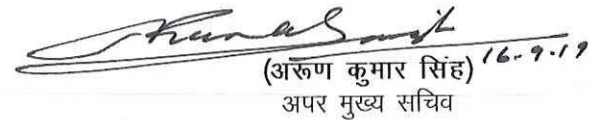 (अरूण कुमार सिंह) 16.9.19
अपर मुख्य सचिव